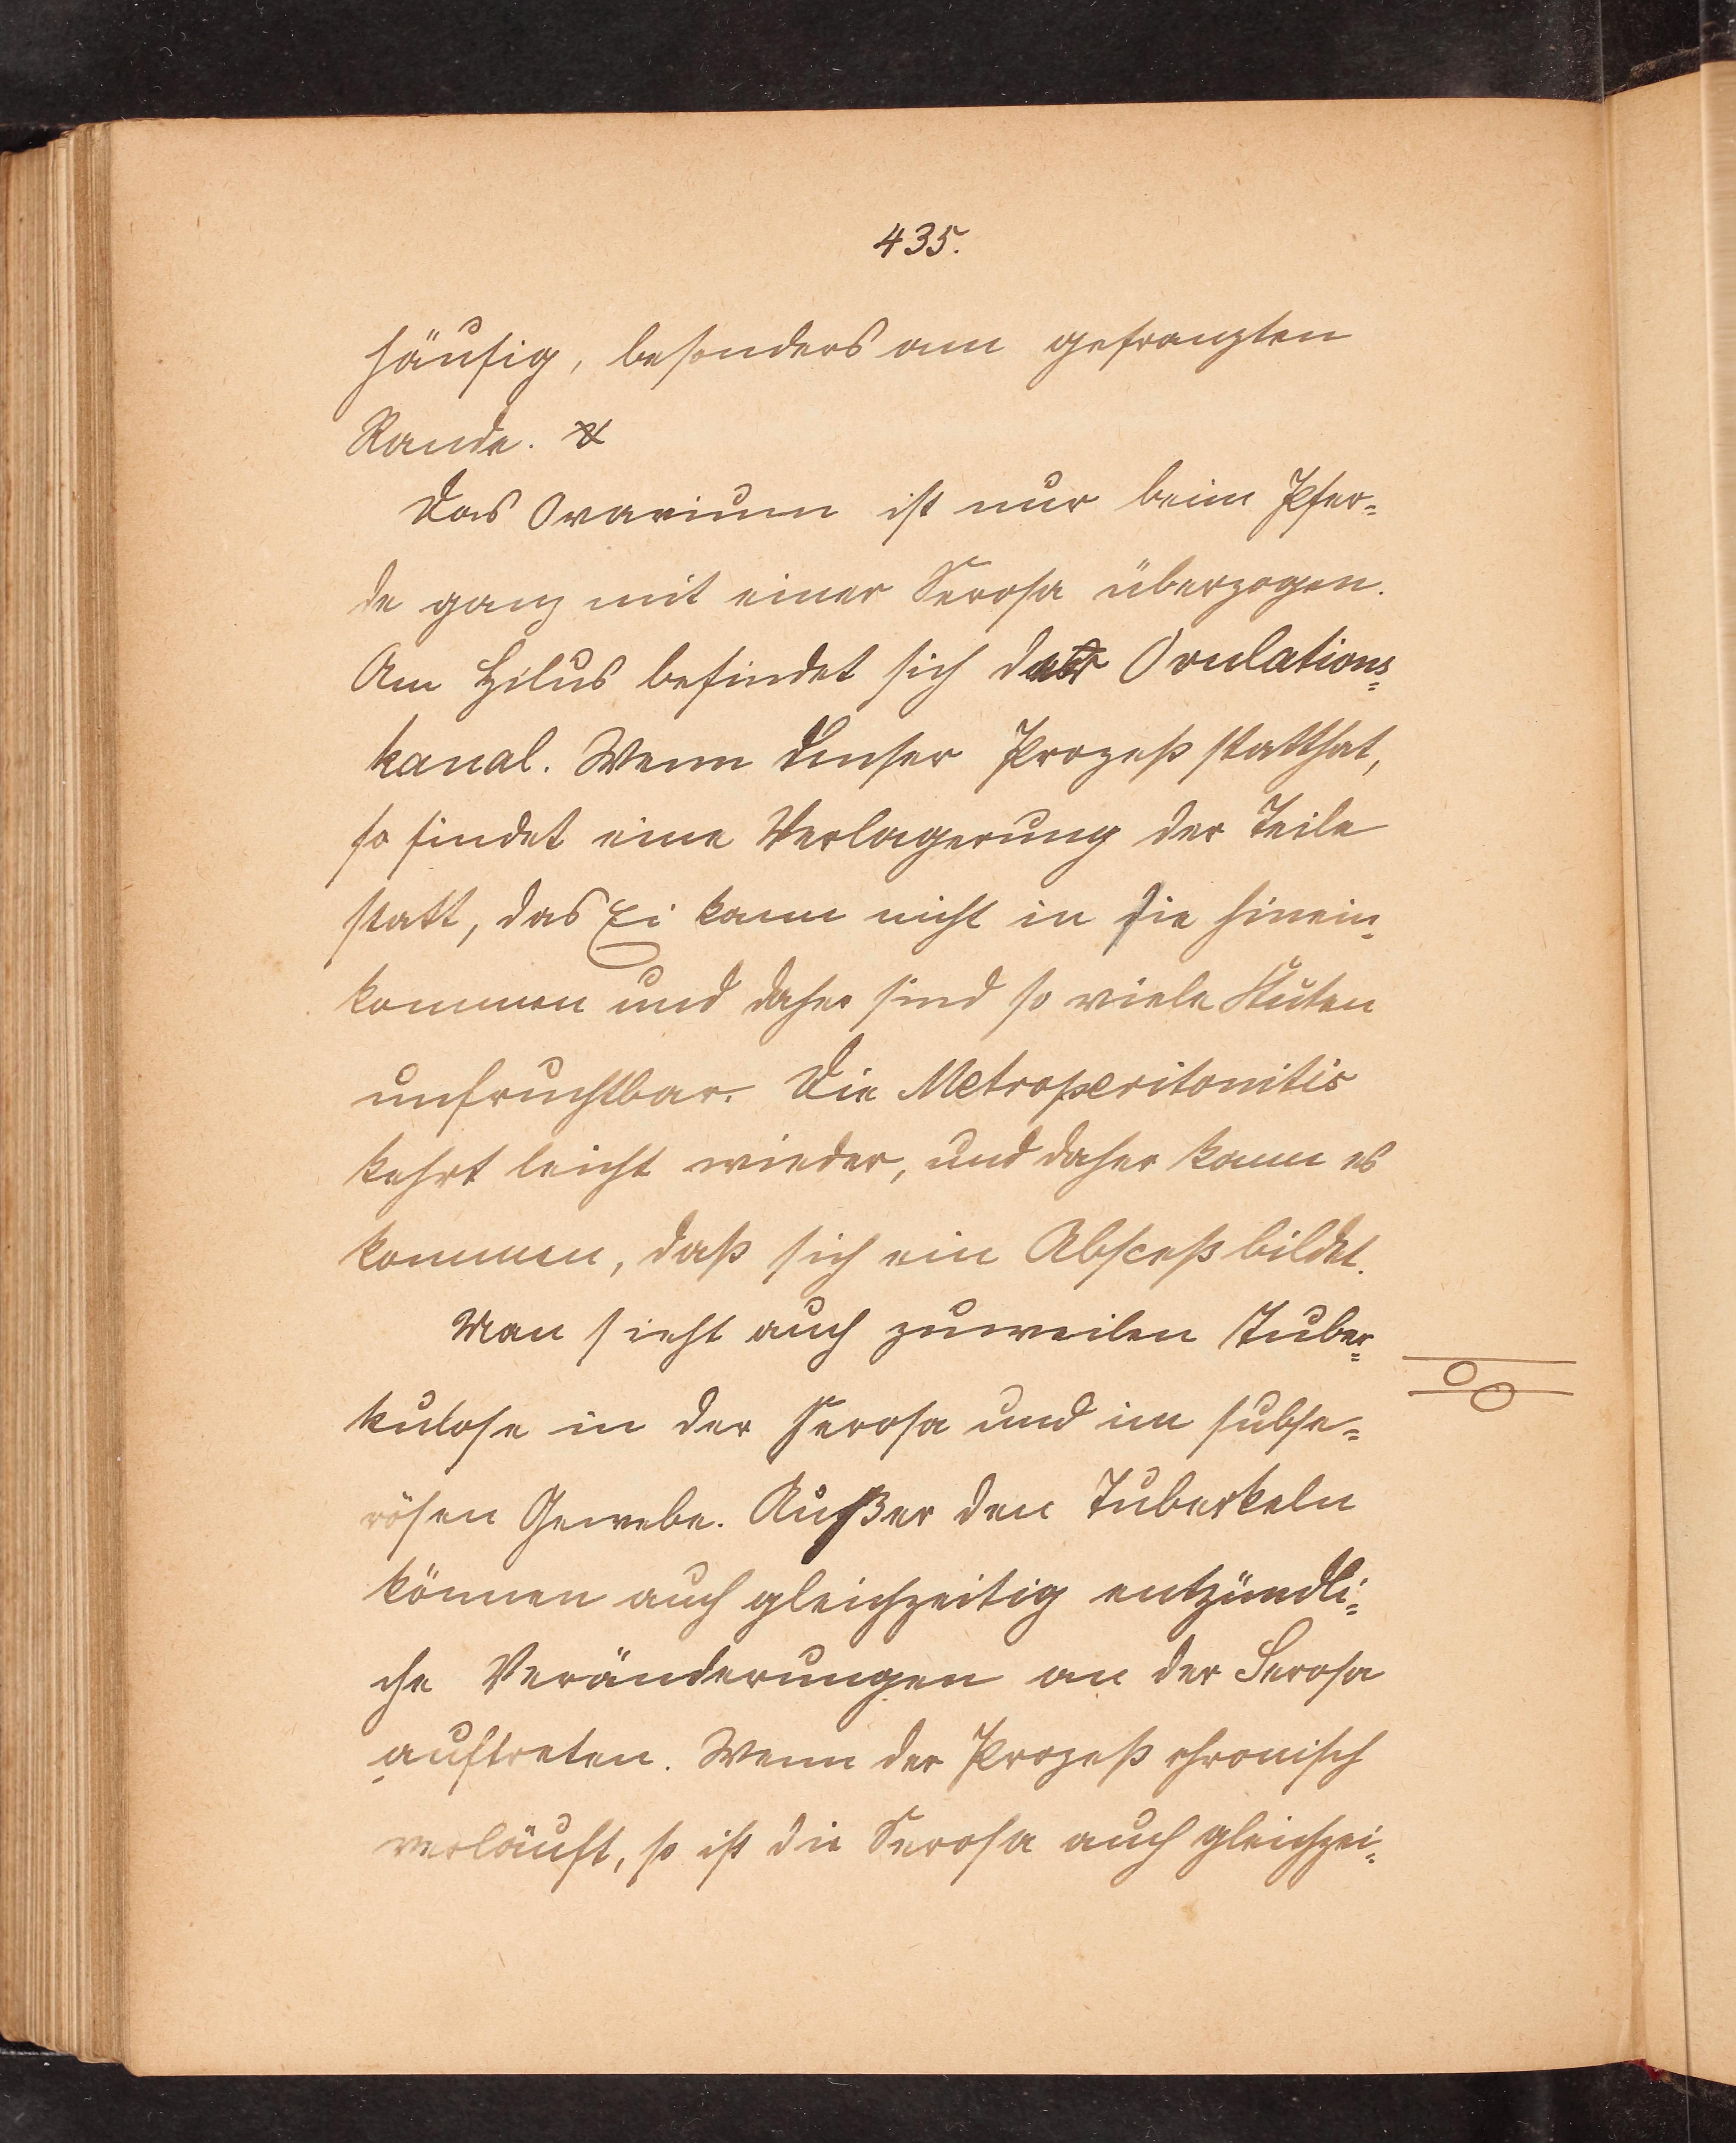 435.
häufig, besonders am gefranzten
Rande.
Das Ovarium ist nur beim Pfer=
de ganz mit einer Serosa überzogen.
Am Hilus befindet sich der Ovulations=
kanal. Wenn dieser Prozeß statthat,
so findet eine Verlagerung der Teile
statt, das Ei kann nicht in sie hinein=
kommen und daher sind so viele Stuten
unfruchtbar. Die Metroperitonitis
kehrt leicht wieder, und daher kann es
kommen, daß sich ein Absceß bildet.
Man sieht auch zuweilen Tuber=
kulose in der Serosa und im subse=
rösen Gewebe. Außer den Tuberkeln
können auch gleichzeitig entzündli=
che Veränderungen an der Serosa
auftreten. Wenn der Prozeß chronisch
verläuft, so ist die Serosa auch gleichzei=